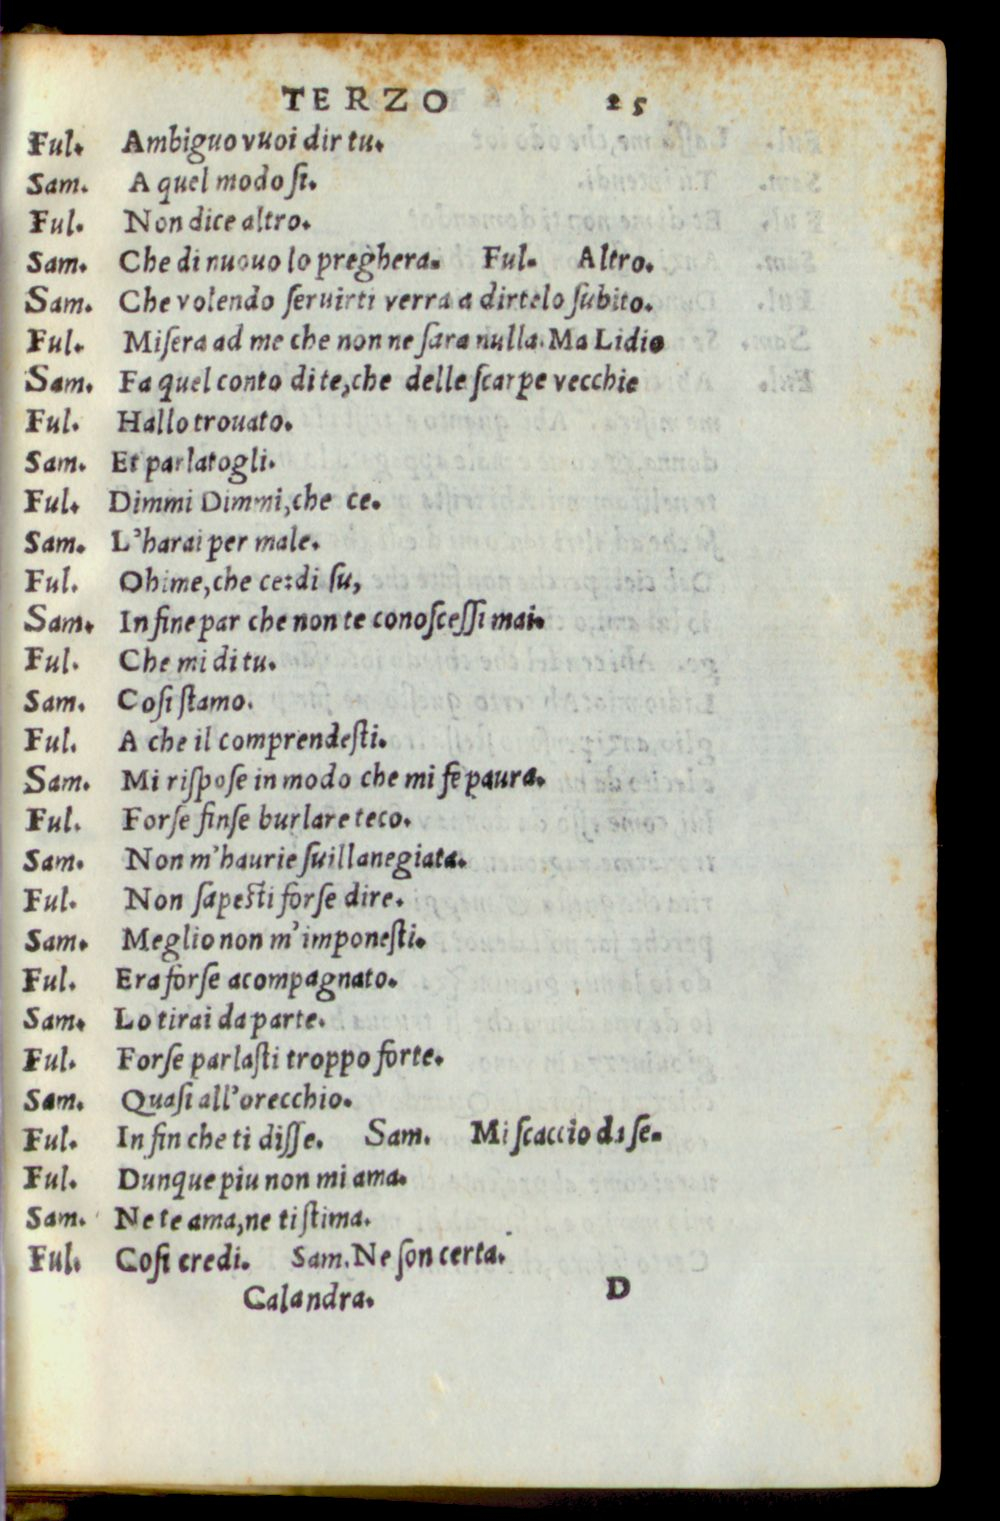 TERZO 25
Ful. Ambiguo vuoi dir tu.
Sam. A quel modo ſi.
Ful. Non dice altro.
Sam. Che di nuouo lo preghera. Ful. Altro.
Sam. Che volendo ſeruirti verra a dirtelo ſubito.
Ful. Miſera ad me che non ne ſara nulla. Ma Lidio
Sam. Fa quel conto di te, che delle ſcarpe vecchie
Ful. Hallo trouato.
Sam. Et parlatogli.
Ful. Dimmi Dimmi, che ce.
Sam. L'harai per male.
Ful. Ohime, che ce: di ſu,
Sam. In fine par che non te conoſceſſi mai.
Ful. Che mi di tu.
Sam. Coſi ſtamo.
Ful. A che il comprendeſti.
Sam. Mi riſpoſe in modo che mi fe paura.
Ful. Forſe finſe burlare teco.
Sam. Non m'haurie ſuillanegiata.
Ful. Non ſapeſti forſe dire.
Sam. Meglio non m'imponeſti.
Ful. Era forſe acompagnato.
Sam. Lo tirai da parte.
Ful. Forſe parlaſti troppo forte.
Sam. Quaſi all'orecchio.
Ful. In fin che ti diſſe. Sam. Mi ſcaccio da ſe.
Ful. Dunque piu non mi ama.
Sam. Ne te ama, ne ti ſtima.
Ful. Coſi credi. Sam. Ne ſon certa.
Calandra. D